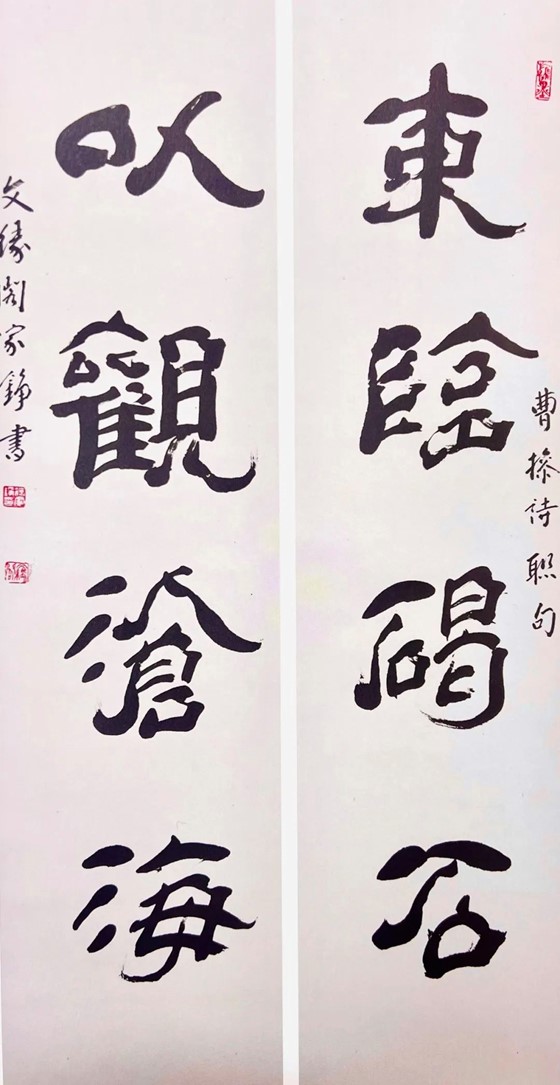 東臨碣石
曹操詩聯句
以觀滄海
文緣閣家錚書